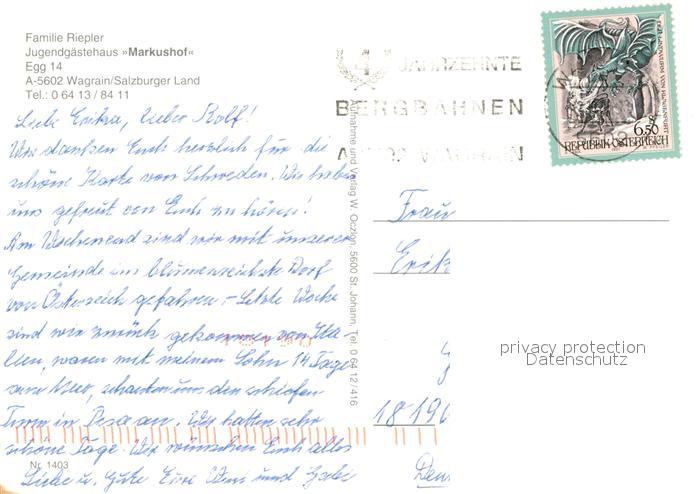 Familie Riepler
Jugendgästehaus »Markushof«
Egg 14
A-5602 Wagrain/Salzburger Land
Tel.: 0 64 13 / 84 11
4 JAHRZEHNTE
BERGBAHNEN
WAGRAIN
6.50
REPUBLIK ÖSTERREICH
Liebe Erika, lieber Rolf!
Wir danken Euch herzlich für die
schöne Karte von Schweden. Wir haben
uns gefreut von Euch zu hören!
Am Wochenend sind wir mit unserer
Gemeinde ins blumenreichste Dorf
von Österreich gefahren. – Letzte Woche
sind wir zurück gekommen von Ita-
lien, waren mit meinem Sohn 14 Tage
ans Meer, schauten uns den schiefen
Turm in Pisa an. Wir hatten sehr
schöne Tage. Wir wünschen Euch alles
Liebe u. Gute Eure und
Nr. 1403
Aufnahme und Verlag W. Oczlon, 5600 St. Johann, Tel. 0 64 12 / 416
Frau
Erik
1819
Deu
privacy protection
Datenschutz